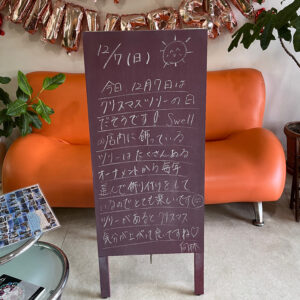 12/7(日)
今日 12月7日は
クリスマスツリーの日
だそうです! Swell
の店内に飾っている
ツリーはたくさんある
オーナメントから毎年
選んで飾り付けをして
いるのでとても楽しいです
ツリーがあるとクリスマス
気分が上がって良いですね♡